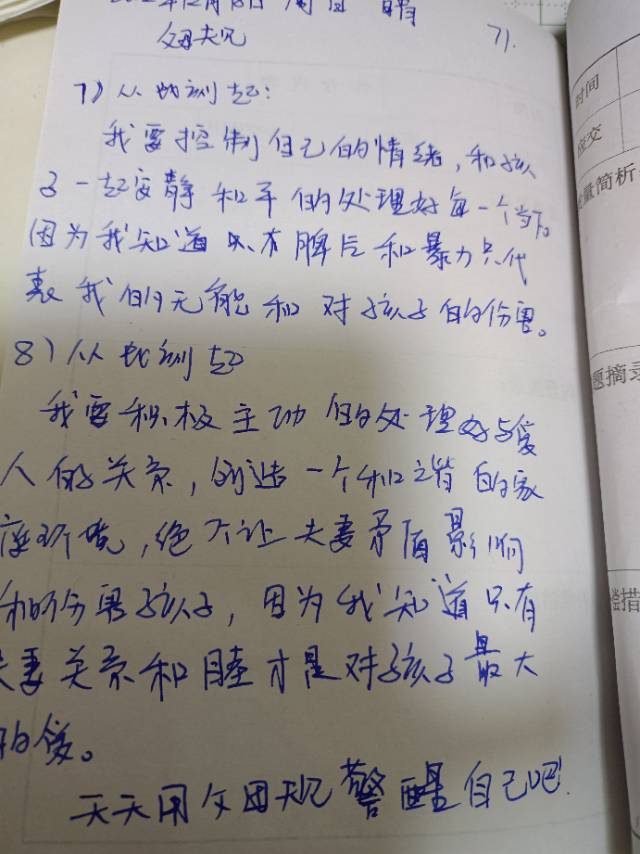 2022年12月18日 周日 晴
父母规 71.
7) 从此刻起:
我要控制自己的情绪,和孩
子一起安静和平的处理好每一个当下。
因为我知道只有脾气和暴力只代
表我的无能和对孩子的伤害。
8) 从此刻起
我要积极主动的处理好与爱
人的关系,创造一个和谐的家
庭环境,绝不让夫妻矛盾影响
和伤害孩子,因为我知道只有
夫妻关系和睦才是对孩子最大
的爱。
天天用父母规警醒自己吧!
时间
量简析
题摘录
措